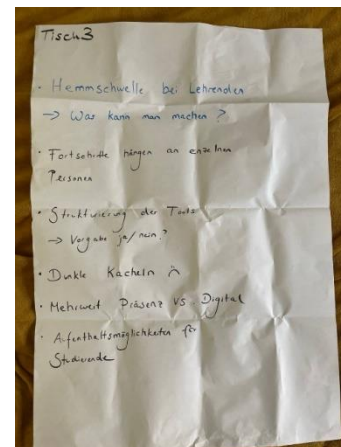 Tisch 3
· Hemmschwelle bei Lehrenden
→ Was kann man machen?
· Fortschritte hängen an einzelnen
Personen
· Strukturierung der Tools
→ Vorgabe ja/nein?
· Dunkle Kacheln :(
· Mehrwert Präsenz VS. Digital
· Aufenthaltsmöglichkeiten für
Studierende